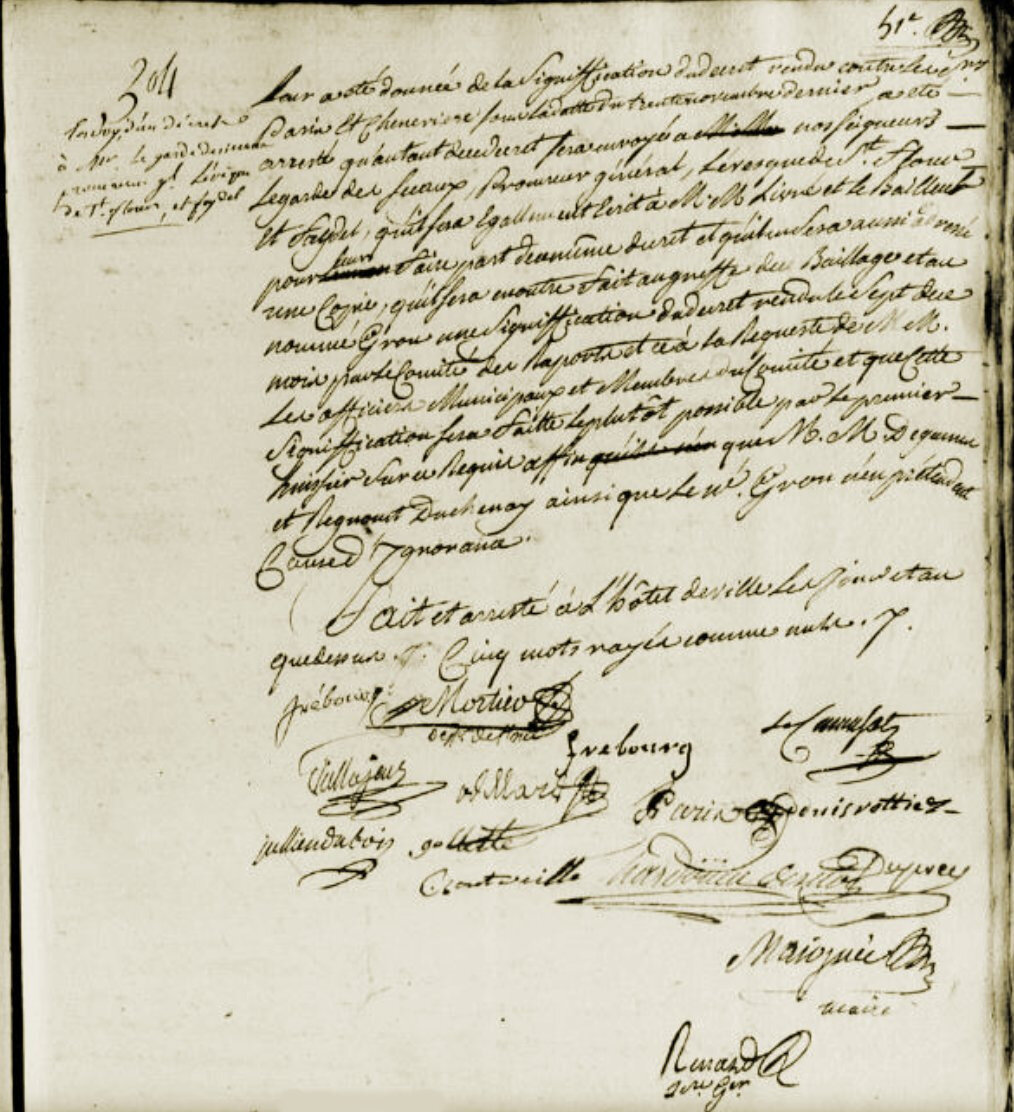 51e.
204
Envoy d'un décret
à Mgr. le garde des sceaux
procureur gl. L'évêque
de St. flour, et faydel
Leur a été donnée de la Signiffication dudecret rendu contre les Srs
Parin Et Cheneviere sous la datte du trente novembre dernier, a été
arresté qu'autant dudecret sera envoyé à nosseigneurs
Legarde des Sceaux, Procureur général, L'évesque de St. Flour
Et Faydel, qu'il sera Egallement Ecrit à M. M. Livré et le Bailleul
pour leur Faire part du même decret et qu'il en sera aussi
une Copie, qu'il sera enoutre Fait au greffe du Baillage et au
nommé Grou une Signiffication dudecret rendu le Sept de ce
mois par le Comité des Raports et ce à la Requeste de M. M.
Les officiers Municipaux et Membres du Comité et que Cette
Signiffication sera Faitte le plutôt possible par le premier
huissier Sur ce Requis affin qu'ils n'en que M. M. Deganne
et Regnouet Duchenay ainsi que Le né. Grou n'en prétendent
Cause d'Ygnorance.
Fait et arresté à L'hôtel de ville Les Jour et an
que dessus. Cinq mots rayés comme nuls.
frébourg Mortier
frebourg
Paris denis rottier
julliendubois gollette
Crouteville Dugrée
Maignée
maire
Renard
Sere. Ger.